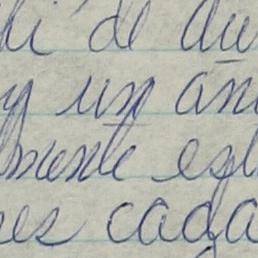 di de du
y un añ
lmente es
es cada